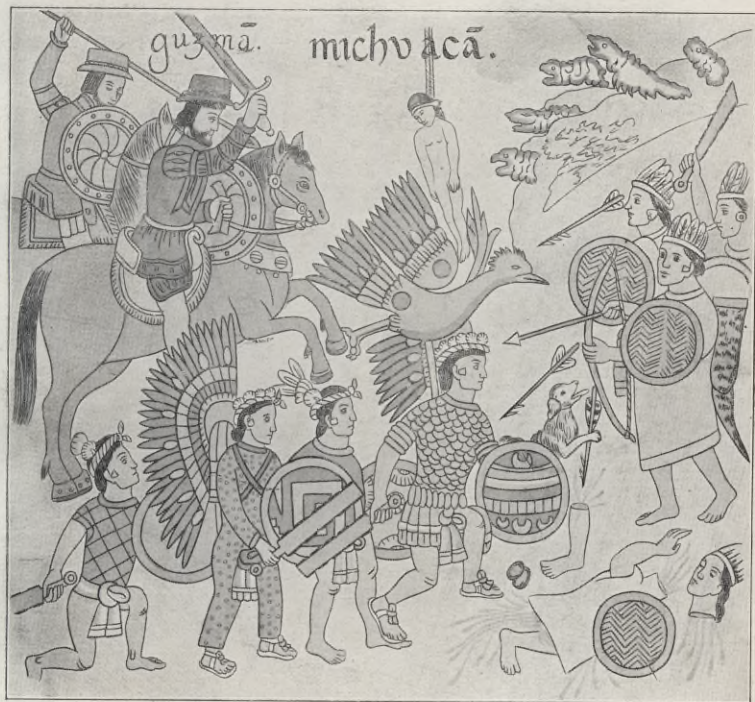 guzmã. michuacã.